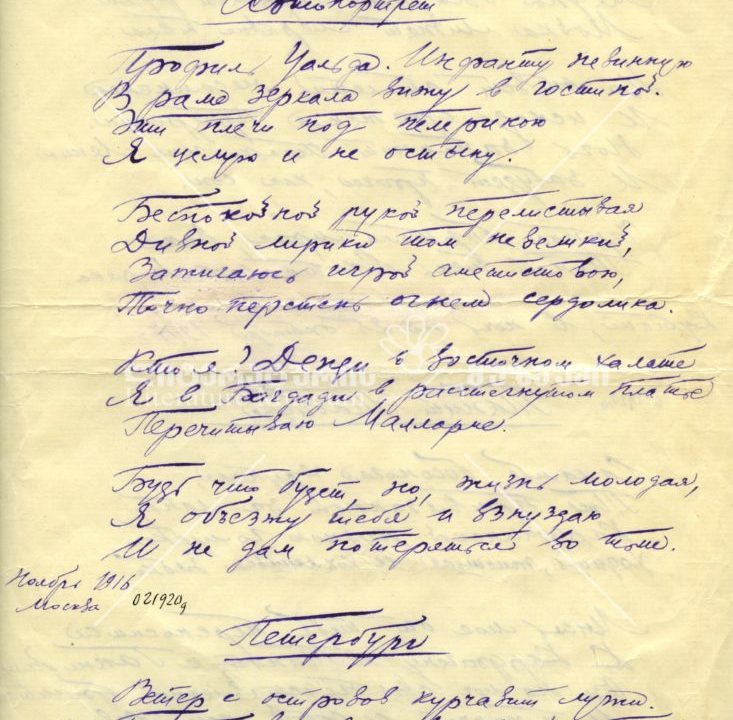 Автопортрет
Профиль Уальда. Инфанту невинную
В раме зеркала вижу в гостиной.
Эти плечи под пелериною
Я целую и не остыну.
Беспокойной рукой перелистывая
Дивной лирики том невеликий,
Зажигаюсь игрой аметистовою,
Точно перстень огнем сердолика.
Кто я? Денди в восточном халате
Я в Багдади в расстегнутом платье
Перечитываю Малларме.
Будь что будет, но, жизнь молодая,
Я объезжу тебя и взнуздаю
И не дам потеряться во тьме.
Ноябрь 1916
Москва
021920д
Петербург
Ветер с островов курчавит лужи.